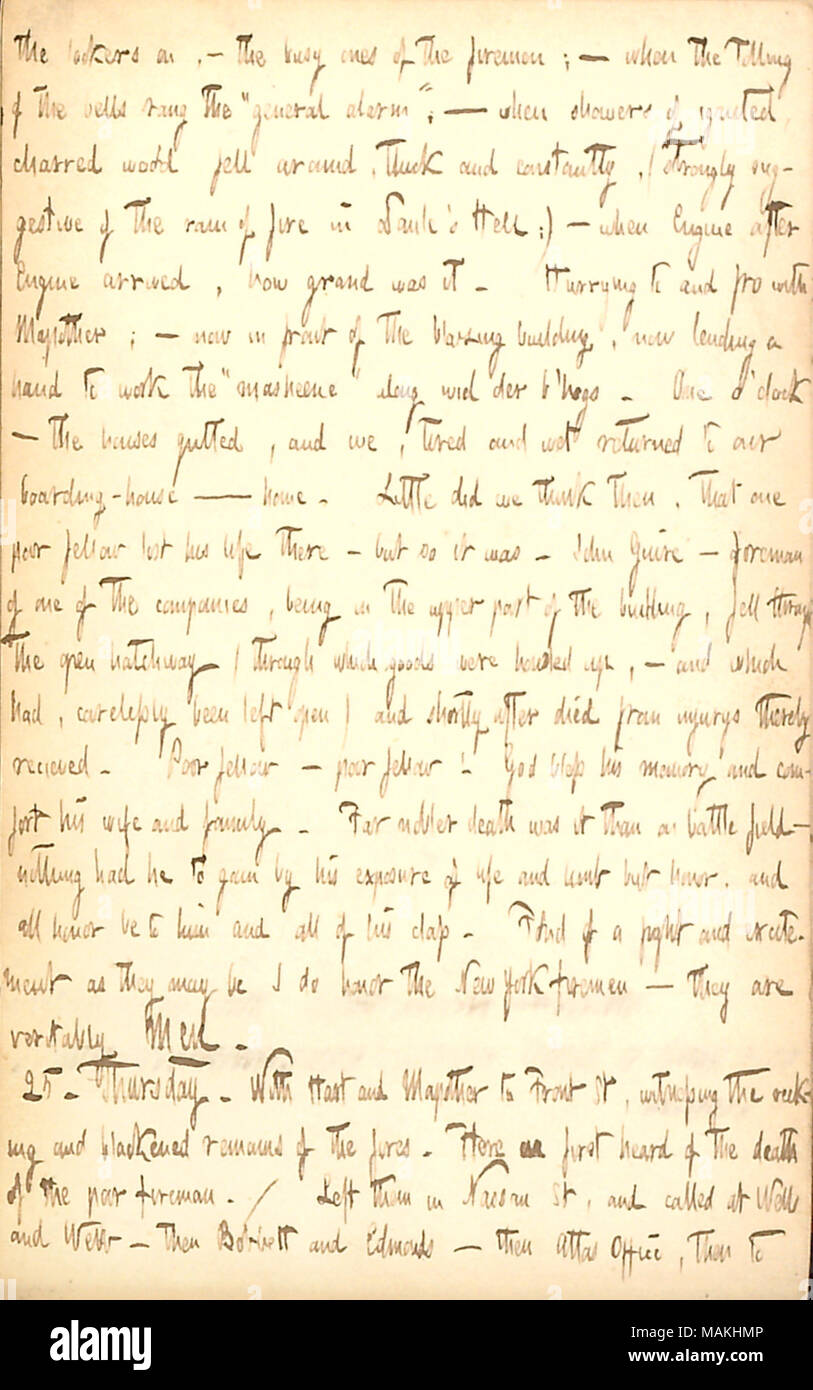 the lookers on, - the busy ones of the firemen ; - when the Tolling
of the bells rang the "general alarm"; - when showers of ignited,
charred wood fell around, thick and constantly, (strongly sug-
gestive of the rain of fire in Dante's Hell;) - when Engine after
Engine arrived, how grand was it - Hurrying to and fro with
Mapother ; - now in front of the blazing building, now lending a
hand to work the "masheene" along wid der b'hoys - One o'clock
- the houses gutted, and we, tired and wet returned to our
boarding-house — home - Little did we think then, that one
poor fellow lost his life there - but so it was - John Guire - foreman
of one of the companies, being in the upper part of the building, fell through
the open hatchway (through which goods were hoisted up, - and which
had, carelessly been left open) and shortly after died from injurys thereby
recieved - Poor fellow - poor fellow! God bless his memory and com-
fort his wife and family - Far nobler death was it than on battle field -
nothing had he to gain by his exposure of life and limb but honor, and
all honor be to him and all of his class - Fond of a fight and excite-
ment as they may be I do honor the New York firemen - they are
veritably Men -
25 - Thursday - With Hart and Mapother to Front St, witnessing the reek-
ing and blackened remains of the fires - Here first heard of the death
of the poor fireman - / Left them in Nassau St, and called at Wells
and Webb - then Bobbett and Edmonds - then Atlas Office, then to
alamy
Image ID: MAKHMP
www.alamy.com